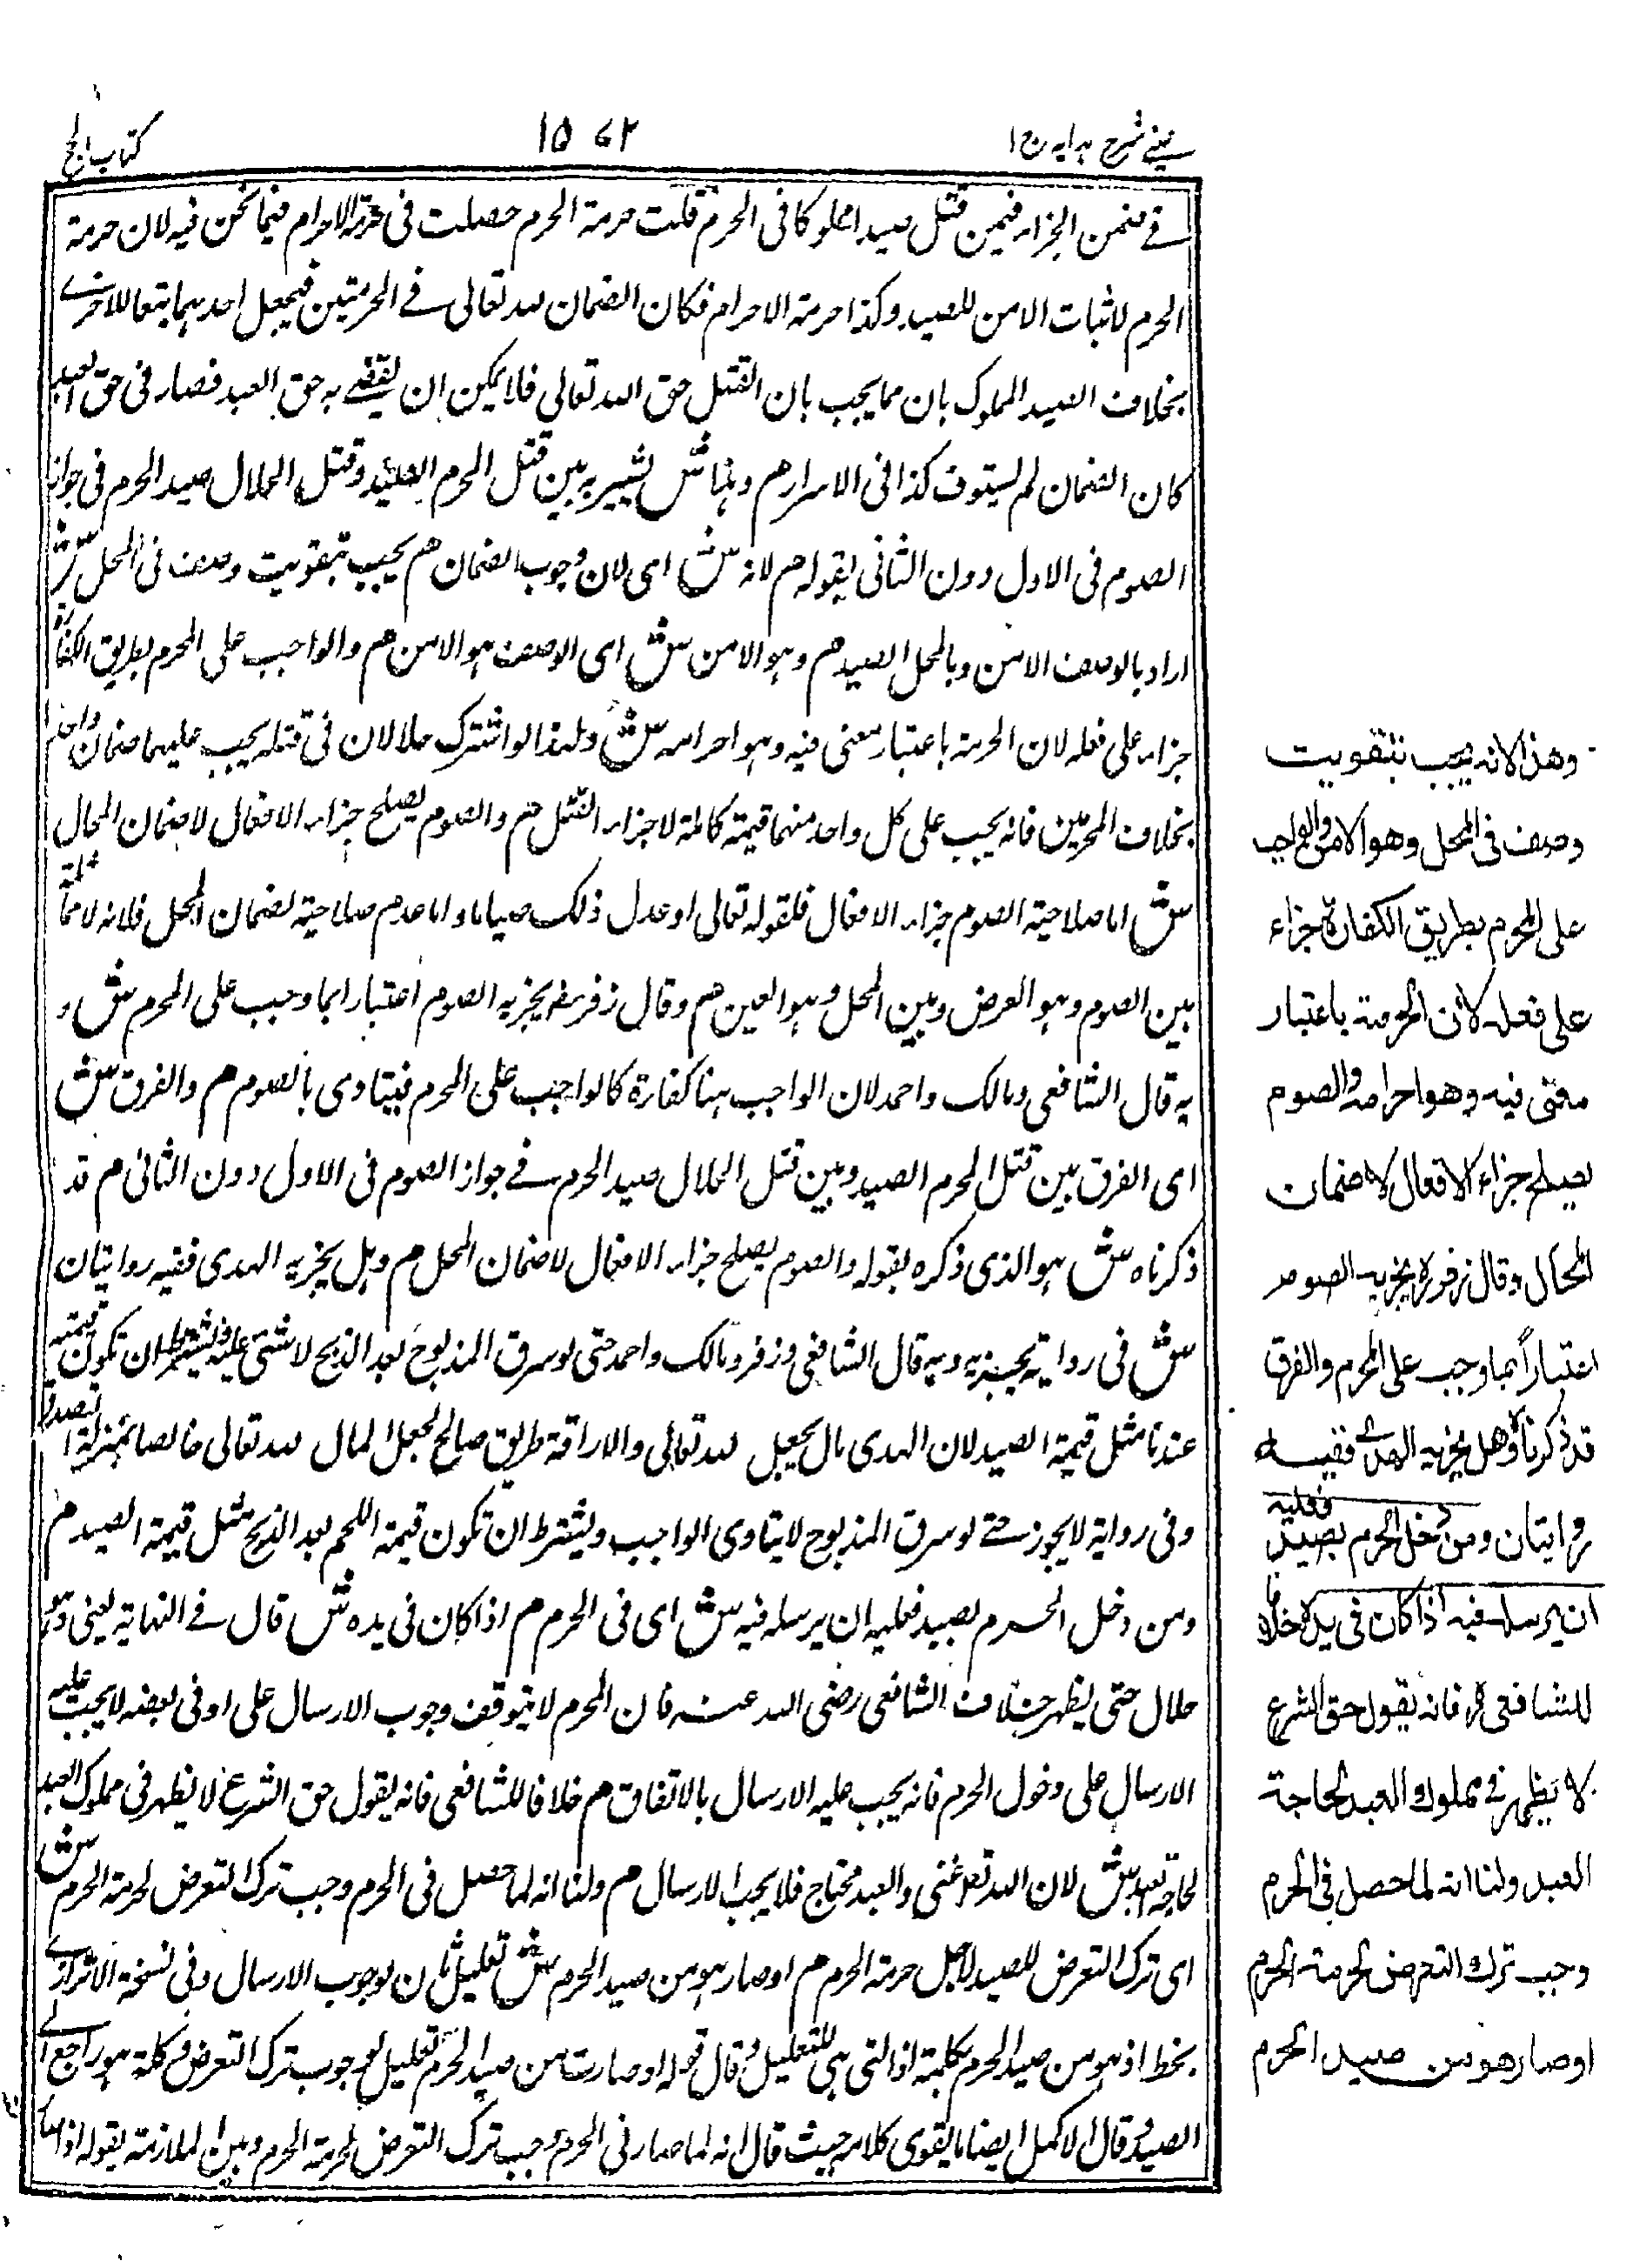 عینی شرح ہدایہ ج ۱
۱۵۷۲
کتاب الحج
فی ضمن الجزاء فیمن قتل صیدا مملوکا فی الحرم قلت حرمة الحرم حصلت فی حرمة الاحرام فیما نحن فیه لان حرمة
الحرم لاثبات الامن للصید وکذا حرمة الاحرام فکان الضمان لله تعالی فی الحرمتین فیجعل احدہما تبعا للاخری
بخلاف الصید المملوک بان ما یجب بان القتل حق الله تعالی فلا یمکن ان یقضی به حق العبد فصار فی حق العبد
کان الضمان لم یستوف کذا فی الاسرار م وہذا ش یشیر به بین قتل المحرم الصید وقتل الحلال صید الحرم فی جواز
الصوم فی الاول دون الثانی بقوله م لانه ش ای لان وجوب الضمان م یجب بتفویت وصف فی المحل ش
اراد بالوصف الامن وبالمحل الصید م وہو الامن ش ای الوصف ہو الامن م والواجب علی المحرم بطریق الکفارة
جزاء علی فعله لان الحرمة باعتبار معنی فیه وہو احرامه ش ولہذا لو اشترک حلالان فی قتله یجب علیہما ضمان واحد
بخلاف المحرمین فانه یجب علی کل واحد منہما قیمة کاملة لا جزاء القتل م والصوم یصلح جزاء الافعال لا ضمان المحال
ش اما صلاحیة الصوم جزاء الافعال فلقوله تعالی او عدل ذلک صیاما واما عدم صلاحیته لضمان المحل فلانه لا مماثلة
بین الصوم وہو العرض وبین المحل وہو العین م وقال زفر رح یجزیه الصوم اعتبارا بما وجب علی المحرم ش و
به قال الشافعی ومالک واحمد لان الواجب ہنا کفارة کالواجب علی المحرم فیتادی بالصوم م والفرق ش
ای الفرق بین قتل المحرم الصید وبین قتل الحلال صید الحرم فی جواز الصوم فی الاول دون الثانی م قد
ذکرناه ش ہو الذی ذکره بقوله والصوم یصلح جزاء الافعال لا ضمان المحل م وہل یجزیه الہدی ففیه روایتان
ش فی روایة یجزیه وبه قال الشافعی وزفر ومالک واحمد حتی لو سرق المذبوح بعد الذبح لا شئ علیه ویشترط ان تکون قیمته
عندنا مثل قیمة الصید لان الہدی مال یجعل لله تعالی والاراقة طریق صالح لجعل المال لله تعالی خالصا بمنزلة التصدق
وفی روایة لا یجوز حتی لو سرق المذبوح لا یتادی الواجب ویشترط ان تکون قیمة اللحم بعد الذبح مثل قیمة الصید م
ومن دخل الحرم بصید فعلیه ان یرسله فیه ش ای فی الحرم م اذا کان فی یده ش قال فی النہایة یعنی وہو
حلال حتی یظہر خلاف الشافعی رضی الله عنه فان المحرم لا یتوقف وجوب الارسال علی او فی بعضه لا یجب علیه
الارسال علی دخول الحرم فانه یجب علیه الارسال بالاتفاق م خلافا للشافعی فانه یقول حق الشرع لا یظہر فی مملوک العبد
لحاجة العبد ش لان الله تعالی غنی والعبد محتاج فلا یجب الارسال م ولنا انه لما حصل فی الحرم وجب ترک التعرض لحرمة الحرم ش
ای ترک التعرض للصید لاجل حرمة الحرم م او صار ہو من صید الحرم ش تعلیل ثان لوجوب الارسال وفی نسخة الاترازی
بخطه اذ ہو من صید الحرم بکلمة اذ التی ہی للتعلیل وقال قوله او صارت من صید الحرم تعلیل لوجوب ترک التعرض وکلمة ہو راجع الی
الصید وقال الاکمل ایضا ما یقوی کلامه حیث قال انه لما صار فی الحرم وجب ترک التعرض لحرمة الحرم وبین الملازمة بقوله اذ
وهذا لانه یجب بتفویت
وصف فی المحل وهو الامن والواجب
علی المحرم بطریق الکفارة جزاء
علی فعله لان الحرمة باعتبار
معنی فیه وهو احرامه والصوم
یصلح جزاء الافعال لا ضمان
المحال وقال زفر رح یجزیه الصوم
اعتباراً بما وجب علی المحرم والفرق
قد ذکرناه وهل یجزیه الهدی ففیه
روایتان ومن دخل الحرم بصید فعلیه
ان یرسله فیه اذا کان فی یده خلافا
للشافعی رح فانه یقول حق الشرع
لا یظهر فی مملوک العبد لحاجة
العبد ولنا انه لما حصل فی الحرم
وجب ترک التعرض لحرمة الحرم
او صار هو من صید الحرم